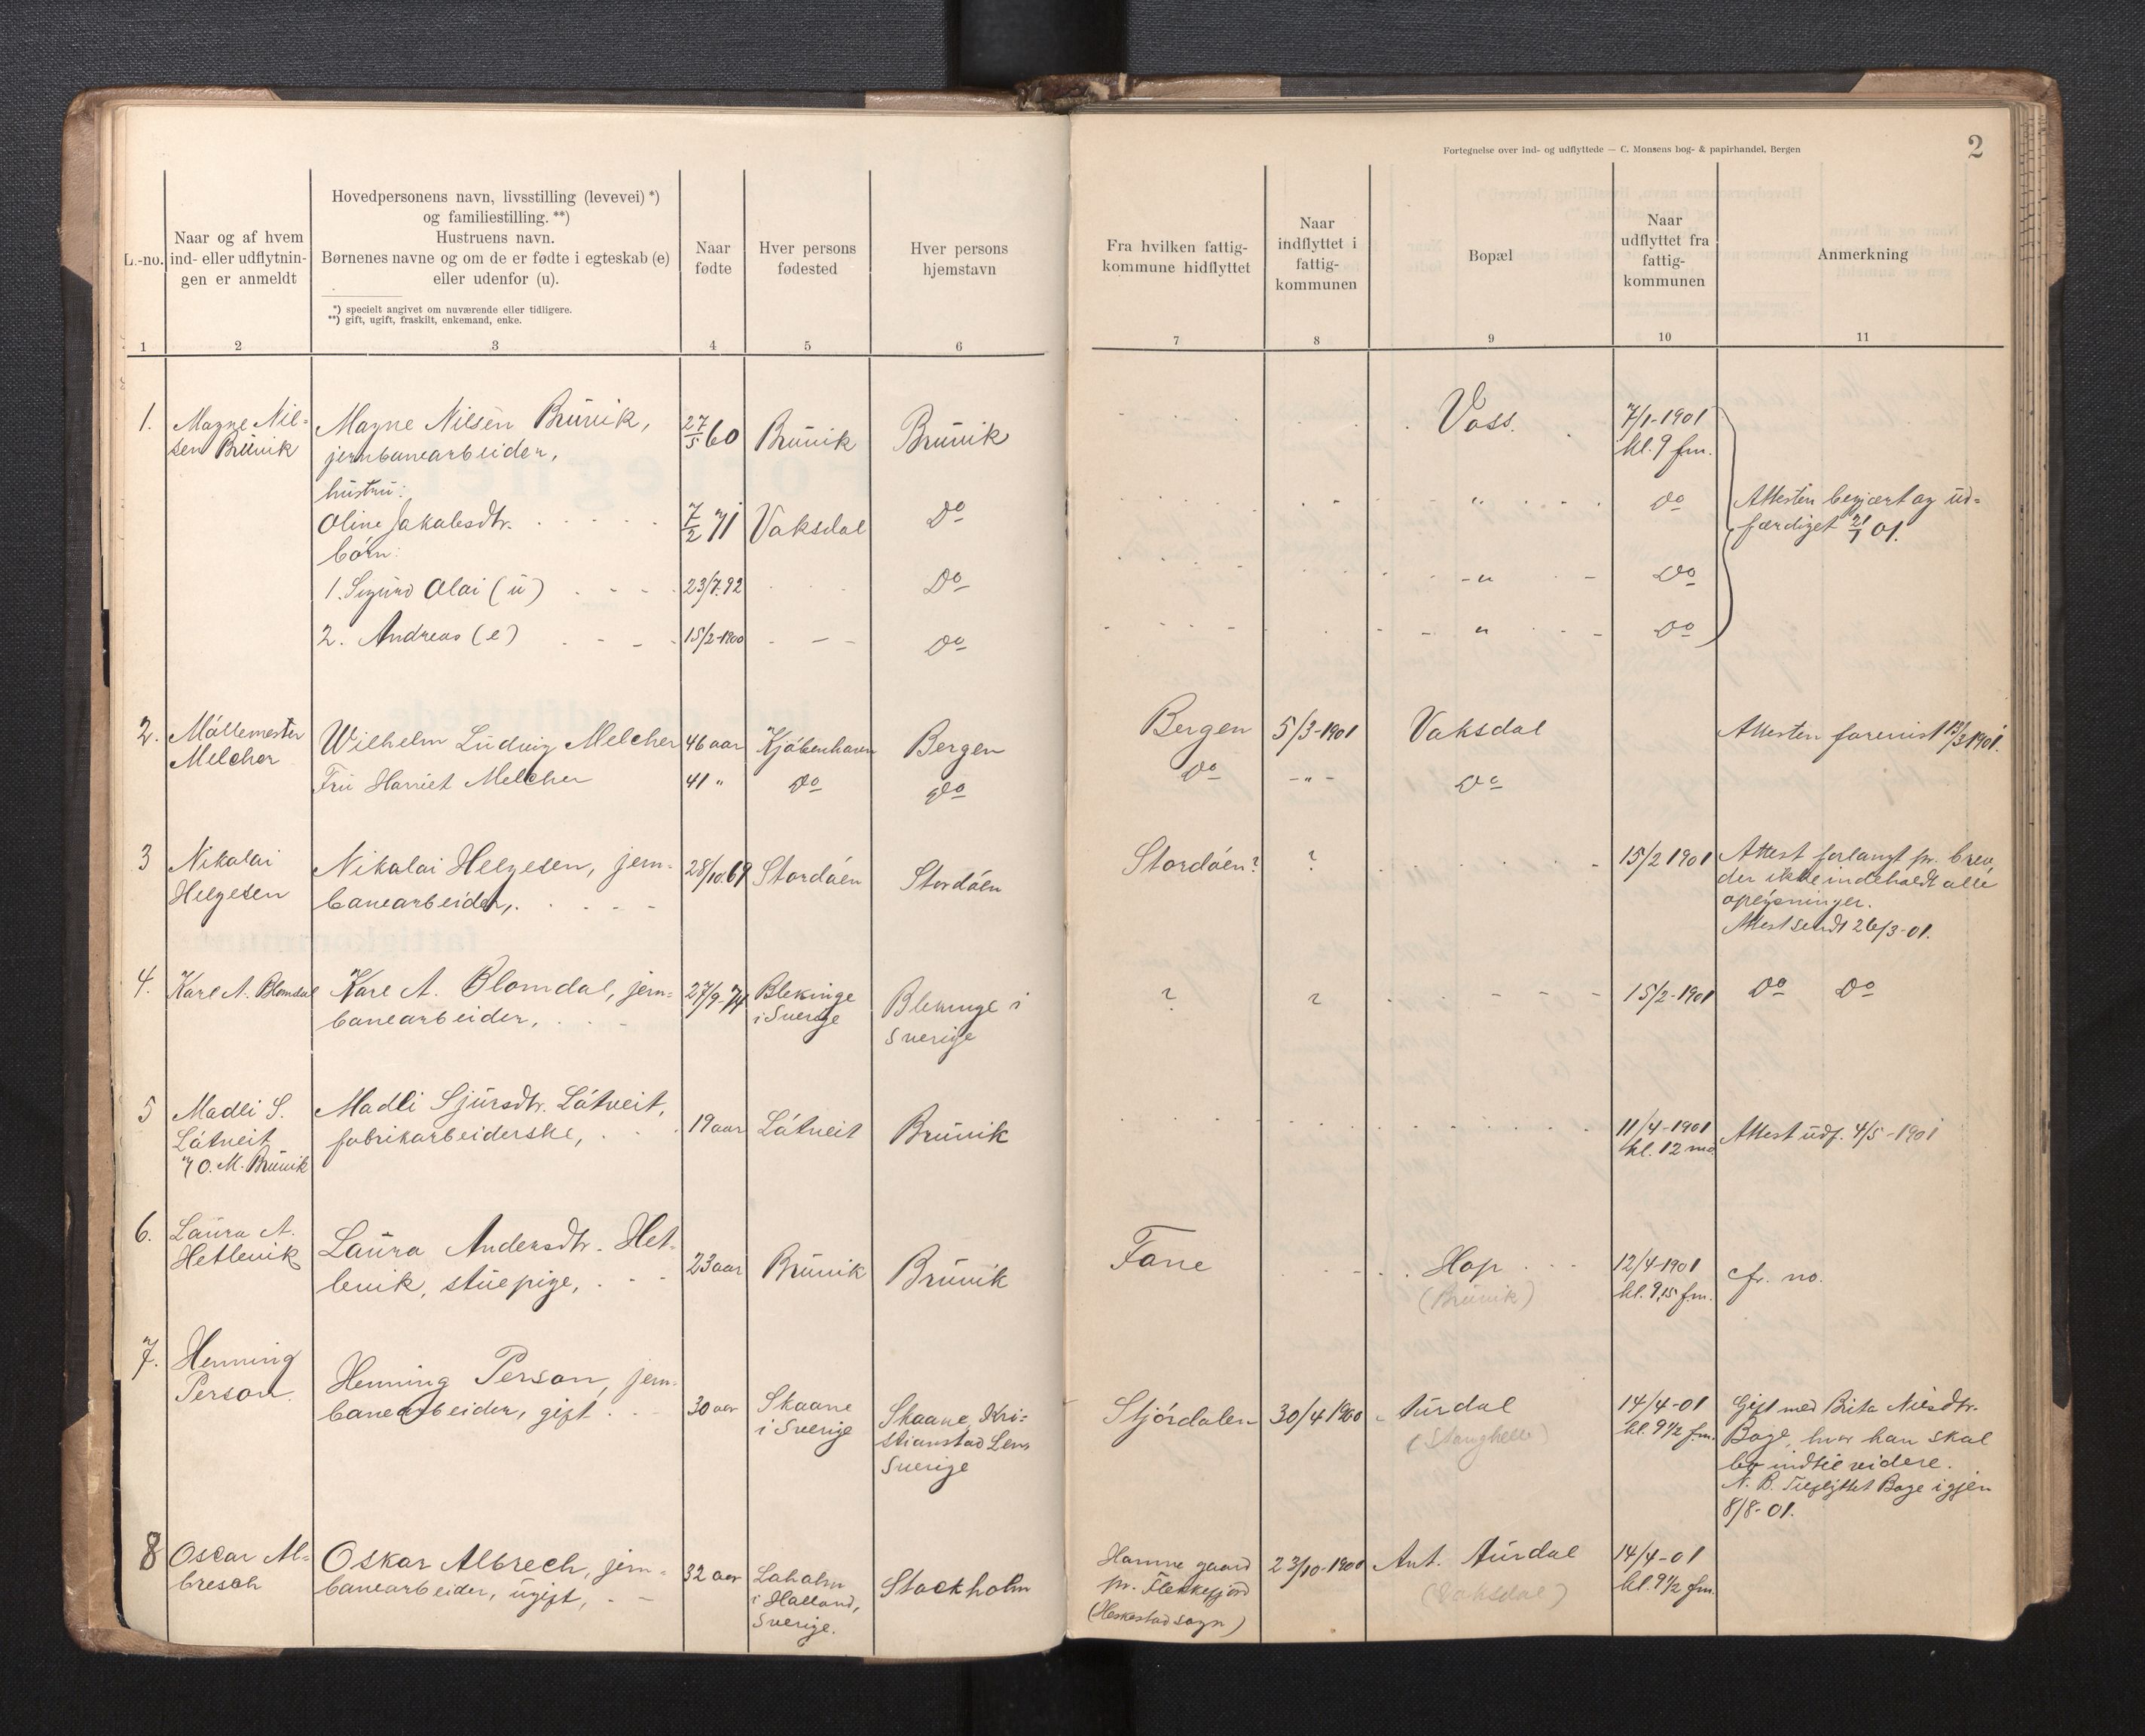 Fortegnelse over ind- og udflyttede — C. Monsens bog- & papirhandel, Bergen
2
L.-no.
Naar og af hvem
ind- eller udflytnin-
gen er anmeldt
Hovedpersonens navn, livsstilling (levevei) *)
og familiestilling. **)
Hustruens navn.
Børnenes navne og om de er fødte i egteskab (e)
eller udenfor (u).
*) specielt angivet om nuværende eller tidligere.
**) gift, ugift, fraskilt, enkemand, enke.
Naar
fødte
Hver persons
fødested
Hver persons
hjemstavn
Fra hvilken fattig-
kommune hidflyttet
Naar
indflyttet i
fattig-
kommunen
Bopæl
Naar
udflyttet fra
fattig-
kommunen
Anmerkning
1 2 3 4 5 6 7 8 9 10 11
1.
Magne Nil-
sen Bruvik
Magne Nilsen Bruvik,
jernbanearbeider,
27/5 60
Bruvik
Bruvik
Voss.
7/1-1901
kl. 9 fm.
hustru:
Oline Jakobsdtr.
7/2 71
Vaksdal
Do
"
Do
Attesten begjært og ud-
færdiget 21/1 01.
børn:
1. Sigurd Olai (u)
23/7.92
Do
"
Do
2. Andreas (e)
15/2-1900
Do
"
Do
2.
Møllemester
Melcher
Wilhelm Ludvig Melcher
46 aar
Kjøbenhavn
Bergen
Bergen
5/3-1901
Vaksdal
Attesten forevist 13/3 1901.
Fru Harriet Melcher
41 "
Do
Do
Do
- " -
Do
3
Nikolai
Helgesen
Nikolai Helgesen, jern-
banearbeider,
28/10.69
Stordøen
Stordøen
Stordøen?
?
15/2 1901
Attest forlangt pr. brev,
der ikke indeholdt alle
oplysninger.
Attest sendt 26/3-01.
4.
Karl A. Blomdal
Karl A. Blomdal, jern-
banearbeider,
27/9-74
Blekinge
i Sverige
Blekinge i
Sverige
?
?
15/2-1901
Do Do
5
Madli S.
Låtveit
O. M. Bruvik
Madli Sjursdtr. Låtveit,
fabrikarbeiderske,
19 aar
Låtveit
Bruvik
11/4-1901
kl. 12 md.
Attest udf. 4/5-1901
6.
Laura A.
Hetlevik
Laura Andersdtr. Het-
levik, stuepige,
23 aar
Bruvik
Bruvik
Fane
Hop
(Bruvik)
12/4-1901
kl. 9,15 fm.
cfr. no.
7.
Henning
Person.
Henning Person, jern-
banearbeider, gift
30 aar
Skaane
i Sverige
Skaane, Kri-
stianstad Len,
Sverige
Stjórdalen
30/4 1900
Aurdal
(Stanghelle)
14/4-01
kl. 9 1/2 fm.
Gift med Brita Nilsdtr.
Boge, hvor han skal
bo indtil videre.
N. B. Tilflyttet Boge igjen
8/8-01.
8
Oscar Al-
brech
Oskar Albrech, jern-
banearbeider, ugift,
32 aar
Laholm
i Halland,
Sverige.
Stockholm
Hamre gaard
pr. Flekkefjord
(Heskestad sogn)
23/10-1900
Ant. Aurdal
(Vaksdal)
14/4-01
kl. 9 1/2 fm.